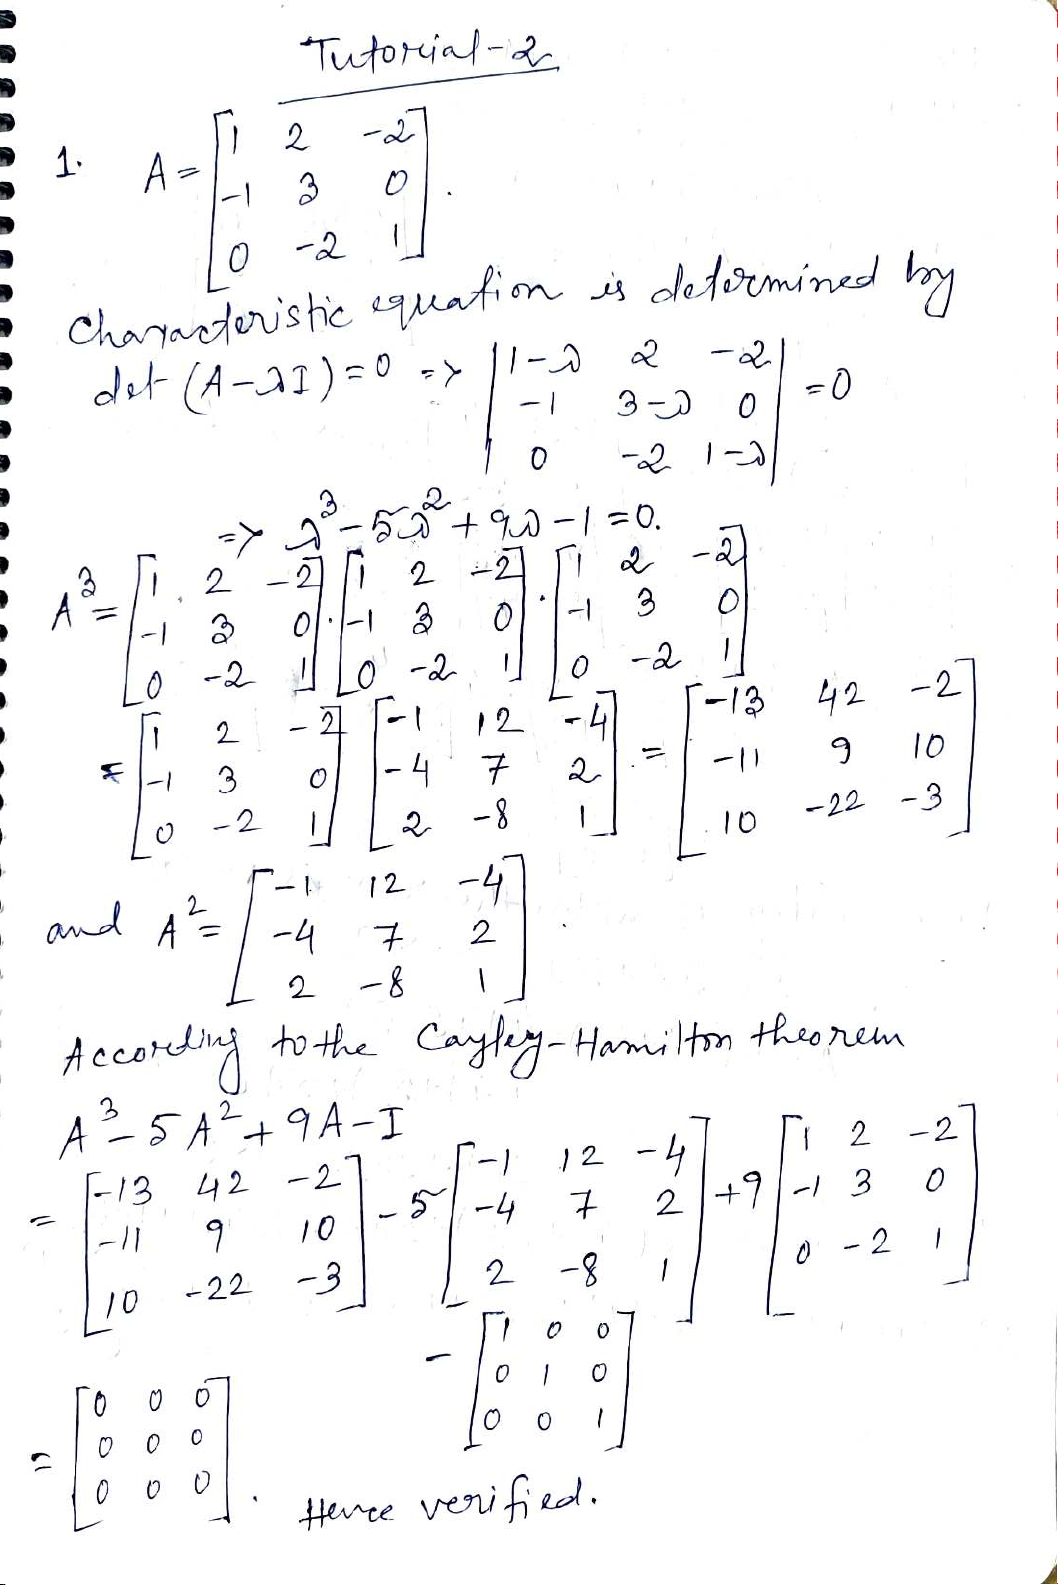 Tutorial-2
1. A = [1 2 -2; -1 3 0; 0 -2 1].
Characteristic equation is determined by
det (A-λI)=0 => |1-λ 2 -2; -1 3-λ 0; 0 -2 1-λ| = 0
=> λ³-5λ²+9λ-1=0.
A³ = [1 2 -2; -1 3 0; 0 -2 1] . [1 2 -2; -1 3 0; 0 -2 1] . [1 2 -2; -1 3 0; 0 -2 1]
= [1 2 -2; -1 3 0; 0 -2 1] [-1 12 -4; -4 7 2; 2 -8 1] = [-13 42 -2; -11 9 10; 10 -22 -3]
and A² = [-1 12 -4; -4 7 2; 2 -8 1]
According to the Cayley-Hamilton theorem
A³-5A²+9A-I
= [-13 42 -2; -11 9 10; 10 -22 -3] -5 [-1 12 -4; -4 7 2; 2 -8 1] +9 [1 2 -2; -1 3 0; 0 -2 1]
- [1 0 0; 0 1 0; 0 0 1]
= [0 0 0; 0 0 0; 0 0 0]. Hence verified.